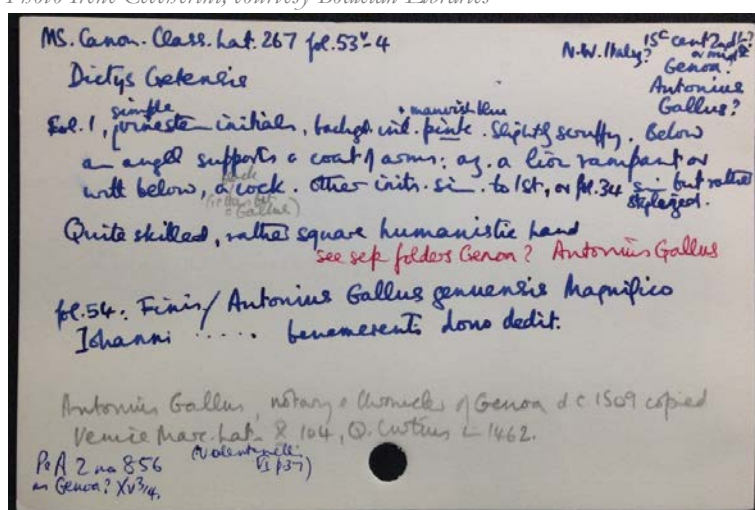 Photo Irene Ceccherini, courtesy Bodleian Libraries
MS. Canon. Class. Lat. 267 fol. 53v-4
N.W. Italy? 15c cent 2nd ½?
or mid
Genoa?
Antonius
Gallus?
Dictys Cretensis
simple + mauvish blue
fol. 1, vinestem initials, backgd. init. pink. Slightly scruffy. Below
an angel supports a coat of arms: az. a lion rampant or
with below, a cock. Other inits. sim. to 1st, or fol. 34 but rather
Gallus)
Quite skilled, rather square humanistic hand
see sep folders Genoa? Antonius Gallus
fol. 54: Finis / Antonius Gallus genuensis Magnifico
Iohanni ..... benemerenti dono dedit.
Antonius Gallus, notary & chronicler of Genoa d c 1509 copied
Venice Marc. Lat. X 104, Q. Curtius in 1462.
(Valentinelli
VI p37)
P&A 2 no 856
as Genoa? XV 3/4.